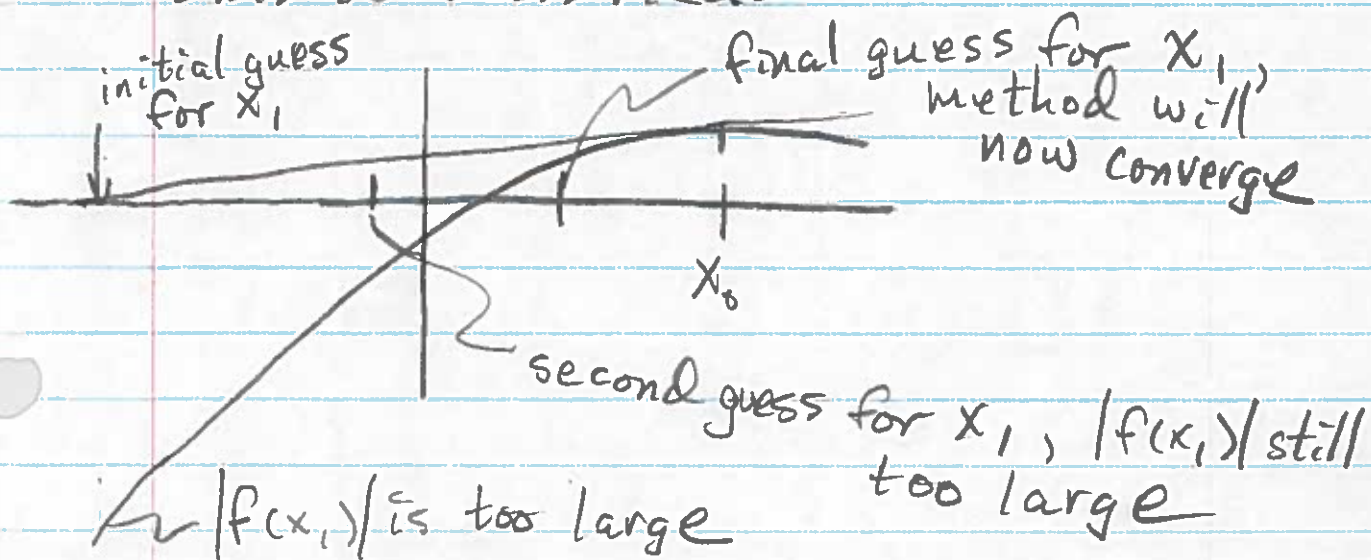 initial guess
for x₁
final guess for x₁,
method will
now converge
x₀
second guess for x₁, |f(x₁)| still
too large
|f(x₁)| is too large